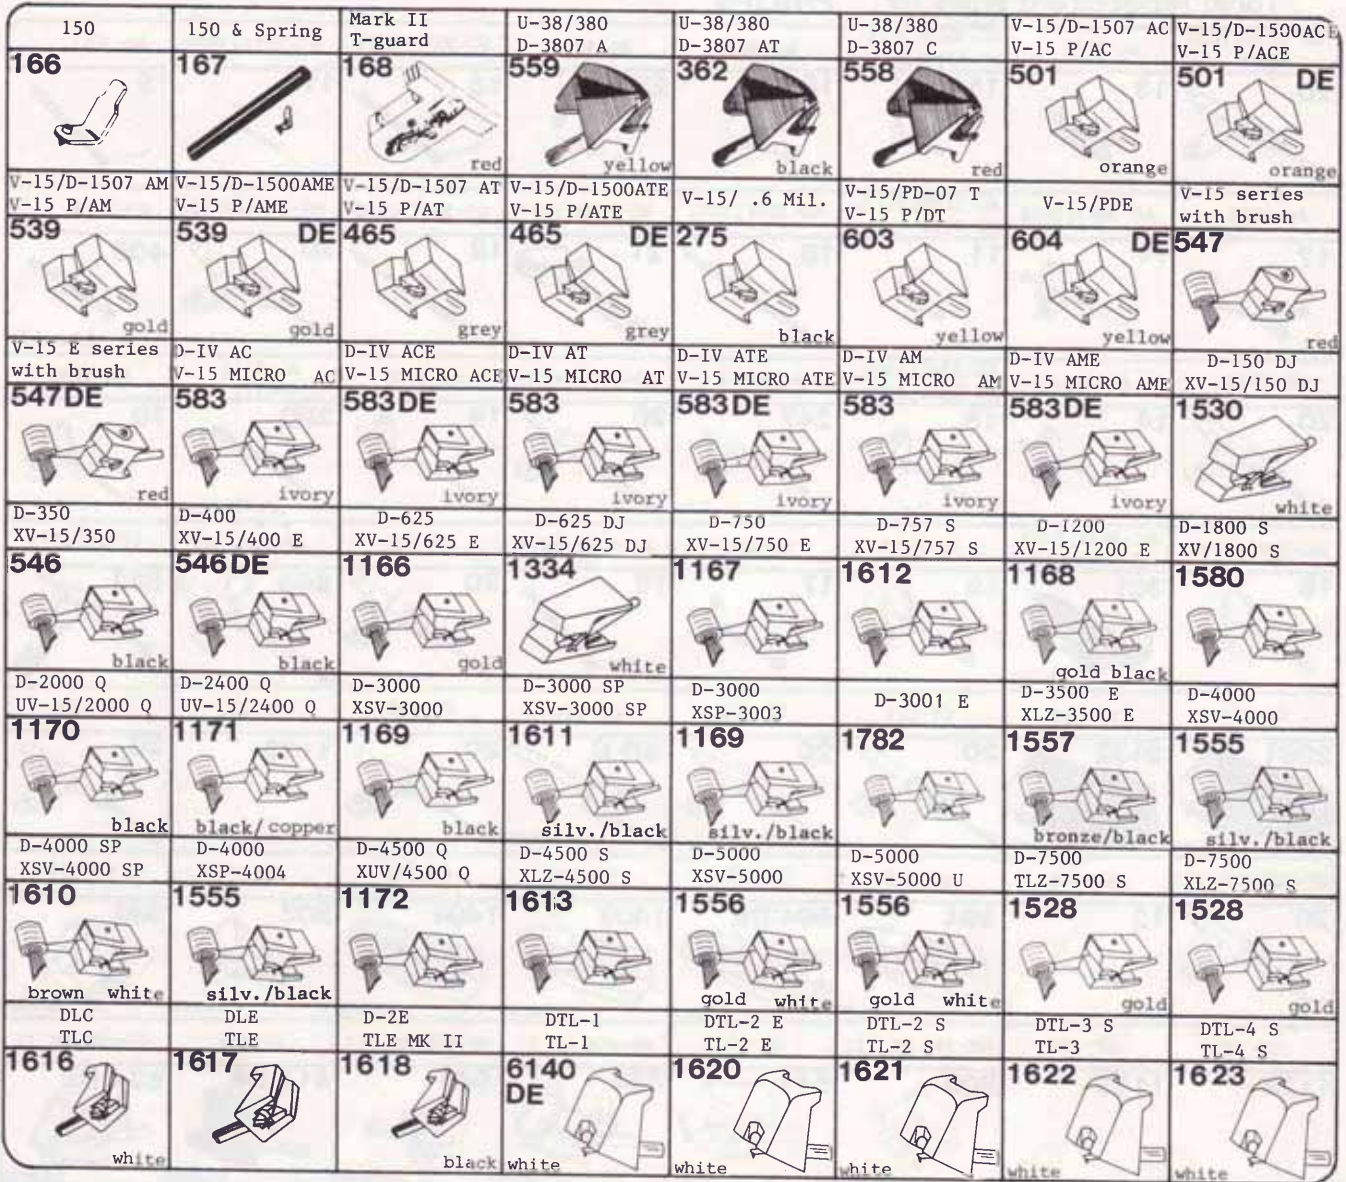 150
150 & Spring
Mark II
T-guard
U-38/380
D-3807 A
U-38/380
D-3807 AT
U-38/380
D-3807 C
V-15/D-1507 AC
V-15 P/AC
V-15/D-1500ACE
V-15 P/ACE
166
167
168
red
559
yellow
362
black
558
red
501
orange
501 DE
orange
V-15/D-1507 AM
V-15 P/AM
V-15/D-1500AME
V-15 P/AME
V-15/D-1507 AT
V-15 P/AT
V-15/D-1500ATE
V-15 P/ATE
V-15/ .6 Mil.
V-15/PD-07 T
V-15 P/DT
V-15/PDE
V-15 series
with brush
539
gold
539 DE
gold
465
grey
465 DE
grey
275
black
603
yellow
604 DE
yellow
547
red
V-15 E series
with brush
D-IV AC
V-15 MICRO AC
D-IV ACE
V-15 MICRO ACE
D-IV AT
V-15 MICRO AT
D-IV ATE
V-15 MICRO ATE
D-IV AM
V-15 MICRO AM
D-IV AME
V-15 MICRO AME
D-150 DJ
XV-15/150 DJ
547DE
red
583
ivory
583DE
ivory
583
ivory
583DE
ivory
583
ivory
583DE
ivory
1530
white
D-350
XV-15/350
D-400
XV-15/400 E
D-625
XV-15/625 E
D-625 DJ
XV-15/625 DJ
D-750
XV-15/750 E
D-757 S
XV-15/757 S
D-1200
XV-15/1200 E
D-1800 S
XV/1800 S
546
black
546DE
black
1166
gold
1334
white
1167
1612
1168
gold black
1580
D-2000 Q
UV-15/2000 Q
D-2400 Q
UV-15/2400 Q
D-3000
XSV-3000
D-3000 SP
XSV-3000 SP
D-3000
XSP-3003
D-3001 E
D-3500 E
XLZ-3500 E
D-4000
XSV-4000
1170
black
1171
black/copper
1169
black
1611
silv./black
1169
silv./black
1782
1557
bronze/black
1555
silv./black
D-4000 SP
XSV-4000 SP
D-4000
XSP-4004
D-4500 Q
XUV/4500 Q
D-4500 S
XLZ-4500 S
D-5000
XSV-5000
D-5000
XSV-5000 U
D-7500
TLZ-7500 S
D-7500
XLZ-7500 S
1610
brown white
1555
silv./black
1172
1613
1556
gold white
1556
gold white
1528
gold
1528
gold
DLC
TLC
DLE
TLE
D-2E
TLE MK II
DTL-1
TL-1
DTL-2 E
TL-2 E
DTL-2 S
TL-2 S
DTL-3 S
TL-3
DTL-4 S
TL-4 S
1616
white
1617
1618
black
6140
DE
white
1620
white
1621
white
1622
white
1623
white